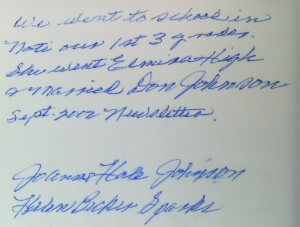 We went to school in
Noti our 1st 3 grades.
She went Elmira High
& married Don Johnson
Sept. 2002 Newsletter.
Joanne Hale Johnson
Helen Bicker Sparks